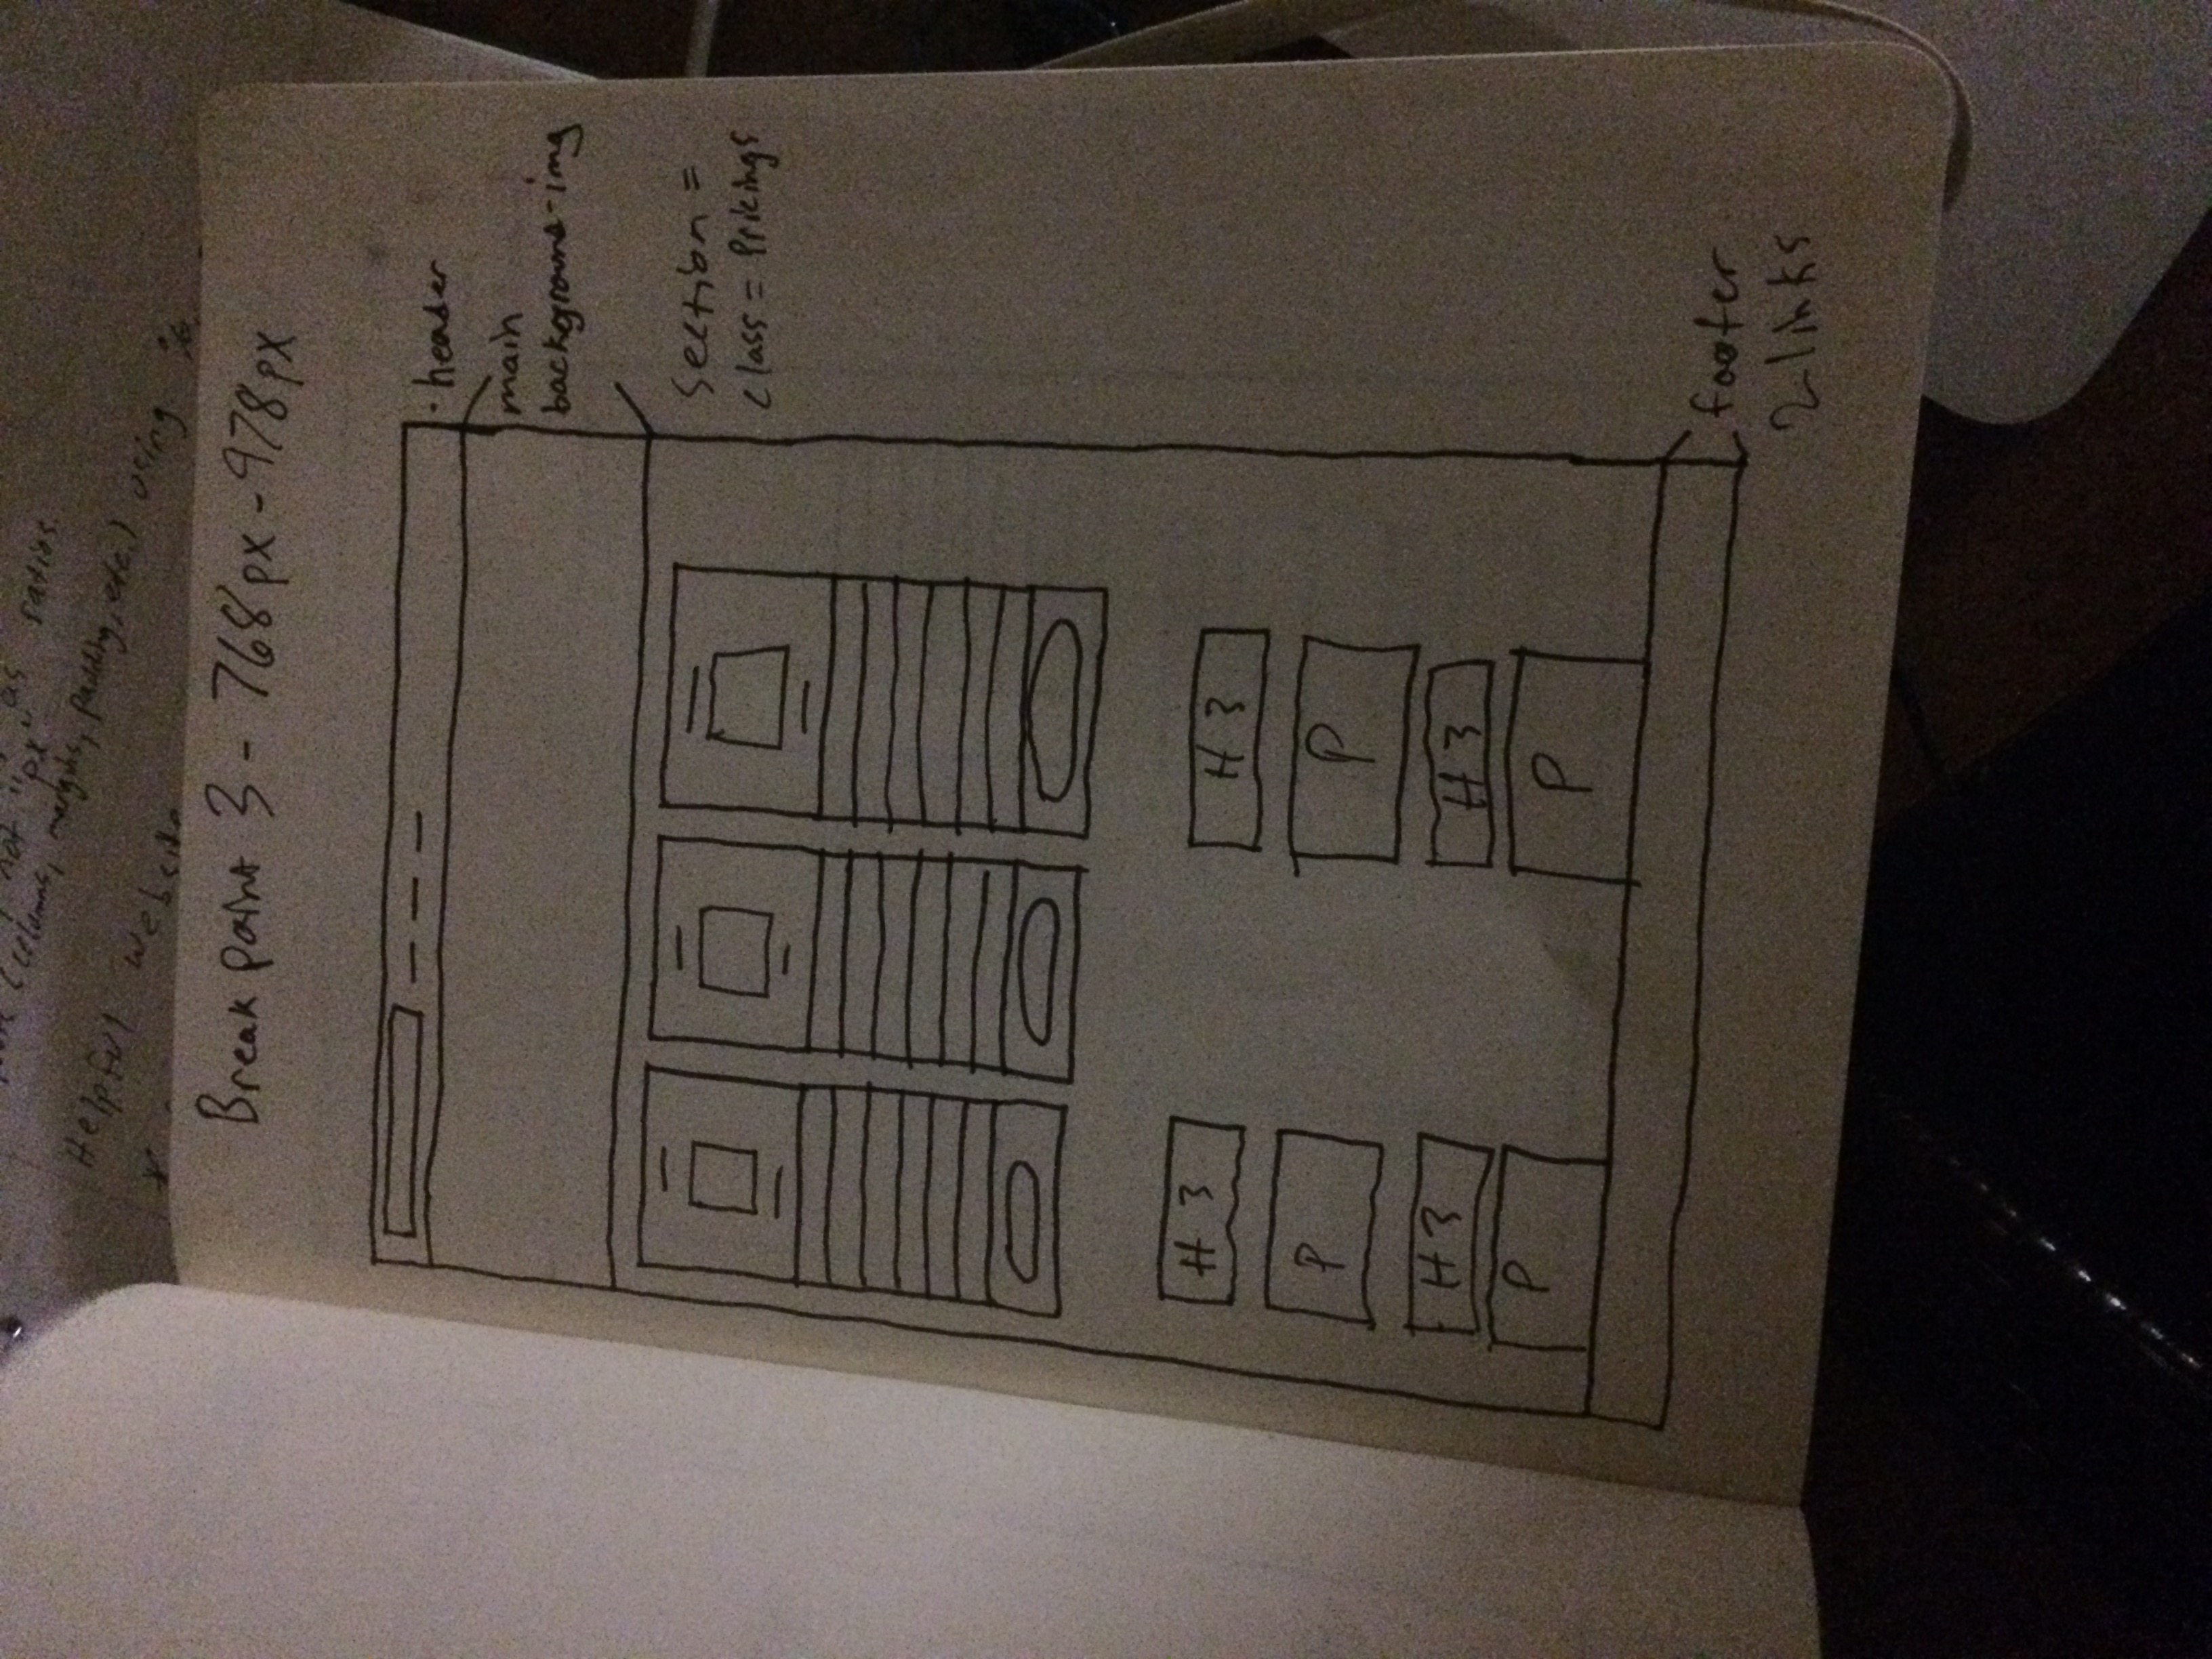 not "px" as ratios.
(columns, margins, padding, etc.) using %
Helpful website
Break point 3 - 768px - 978px
· header
main
background-img
Section =
class = Pricings
H 3
H 3
P
P
H 3
H 3
P
P
footer
2 links